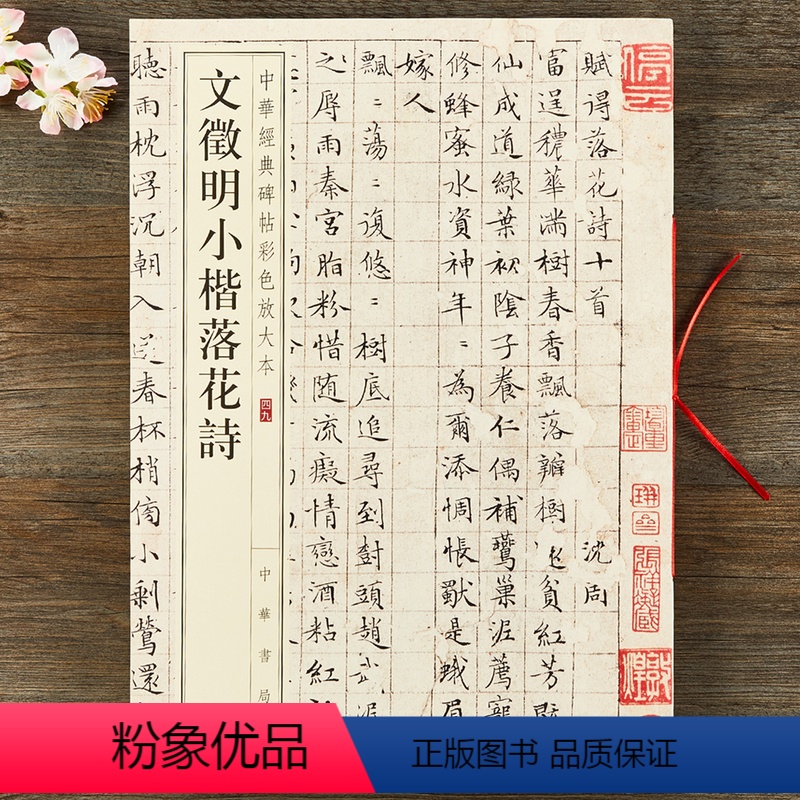 賦得落花詩十首 沈周
富逞穠華滿樹春香飄落瓣樹還貧紅芳既
仙成道綠葉初陰子養仁偶補鶯巢泥薦寵
修蜂蜜水資神年＝為爾添惆悵獸是蛾眉
嫁人
飄＝蕩＝復悠＝樹底追尋到樹頭趙武泥
之辱雨秦宮脂粉惜随流癡情戀酒粘紅
中華經典碑帖彩色放大本 四九
文徵明小楷落花詩
中華書局
聽雨枕浮沉朝入
春杯梢傍小剩鶯還
停云
粉象优品
正版图书 品质保证